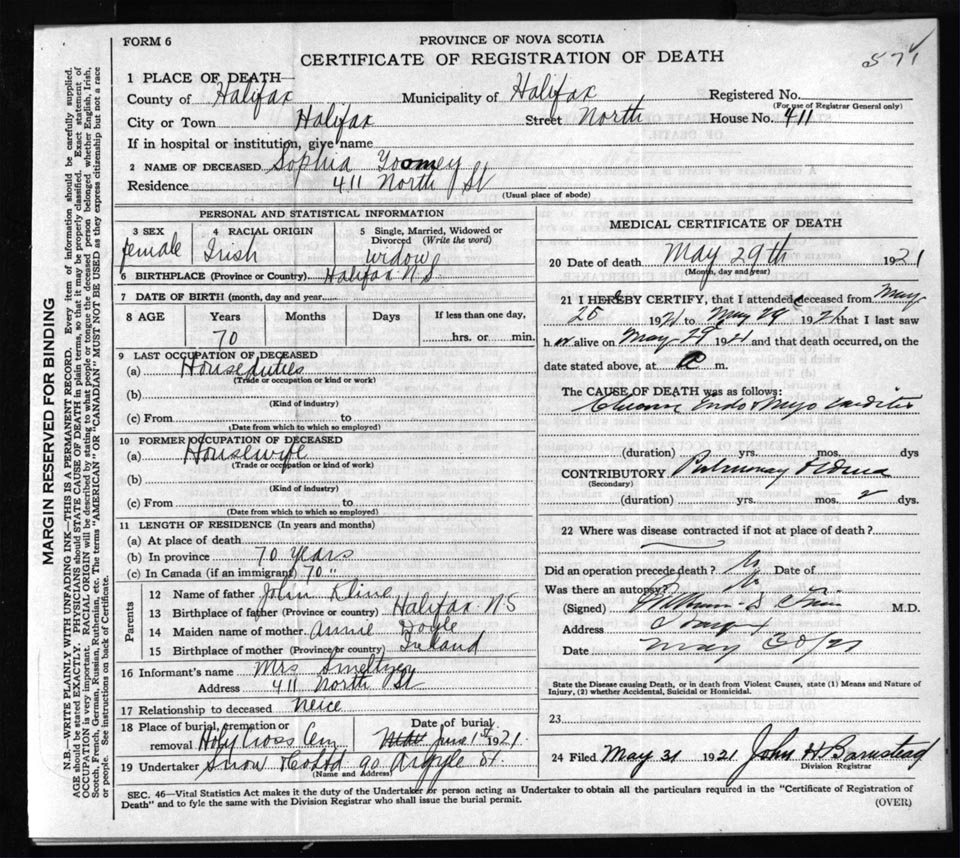 FORM 6
PROVINCE OF NOVA SCOTIA
CERTIFICATE OF REGISTRATION OF DEATH
571
1 PLACE OF DEATH—
County of Halifax Municipality of Halifax Registered No.
(For use of Registrar General only)
City or Town Halifax Street North House No. 411
If in hospital or institution, give name
2 NAME OF DECEASED Sophia Toomey
Residence 411 North St
(Usual place of abode)
PERSONAL AND STATISTICAL INFORMATION
3 SEX 4 RACIAL ORIGIN 5 Single, Married, Widowed or Divorced (Write the word)
female Irish widow
6 BIRTHPLACE (Province or Country) Halifax N.S
7 DATE OF BIRTH (month, day and year)
8 AGE Years Months Days If less than one day,
70 hrs. or min.
9 LAST OCCUPATION OF DECEASED
(a) House duties
(Trade or occupation or kind of work)
(b)
(Kind of industry)
(c) From to
(Date from which to which so employed)
10 FORMER OCCUPATION OF DECEASED
(a) Housewife
(Trade or occupation or kind of work)
(b)
(Kind of industry)
(c) From to
(Date from which to which so employed)
11 LENGTH OF RESIDENCE (In years and months)
(a) At place of death
(b) In province 70 years
(c) In Canada (if an immigrant) 70 "
Parents
12 Name of father John Kline
13 Birthplace of father (Province or country) Halifax N.S
14 Maiden name of mother Annie Doyle
15 Birthplace of mother (Province or country) Ireland
16 Informant's name Mrs Smeltzer
Address 411 North St
17 Relationship to deceased Neice
18 Place of burial, cremation or removal Holy Cross Cem Date of burial June 1st 1921
19 Undertaker Snow & Co Ltd 90 Argyle St.
(Name and Address)
MEDICAL CERTIFICATE OF DEATH
20 Date of death May 29th 1921
(Month, day and year)
21 I HEREBY CERTIFY, that I attended deceased from May
1921 to May 29 1921 that I last saw
her alive on May 29 1921 and that death occurred, on the
date stated above, at m.
The CAUSE OF DEATH was as follows:
Chronic Endo & Myo carditis
(duration) yrs. mos. dys
CONTRIBUTORY Pulmonary Edema
(Secondary)
(duration) yrs. mos. 2 dys.
22 Where was disease contracted if not at place of death?
Did an operation precede death? No Date of
Was there an autopsy? No
(Signed) M.D.
Address
Date May 30/21
State the Disease causing Death, or in death from Violent Causes, state (1) Means and Nature of
Injury, (2) whether Accidental, Suicidal or Homicidal.
23
24 Filed May 31 1921 John H Barnstead
Division Registrar
SEC. 46—Vital Statistics Act makes it the duty of the Undertaker or person acting as Undertaker to obtain all the particulars required in the "Certificate of Registration of
Death" and to fyle the same with the Division Registrar who shall issue the burial permit.
(OVER)
MARGIN RESERVED FOR BINDING
N.B.—WRITE PLAINLY WITH UNFADING INK—THIS IS A PERMANENT RECORD. Every item of information should be carefully supplied.
AGE should be stated EXACTLY. PHYSICIANS should STATE CAUSE OF DEATH in plain terms, so that it may be properly classified. Exact statement of
OCCUPATION is very important. RACIAL ORIGIN will be described by stating to what people or tongue the deceased person belonged, whether English, Irish,
Scotch, French, German, Russian, Ruthenian, etc. The terms "AMERICAN" OR "CANADIAN" MUST NOT BE USED as they express citizenship but not a race
or people. See instructions on back of Certificate.